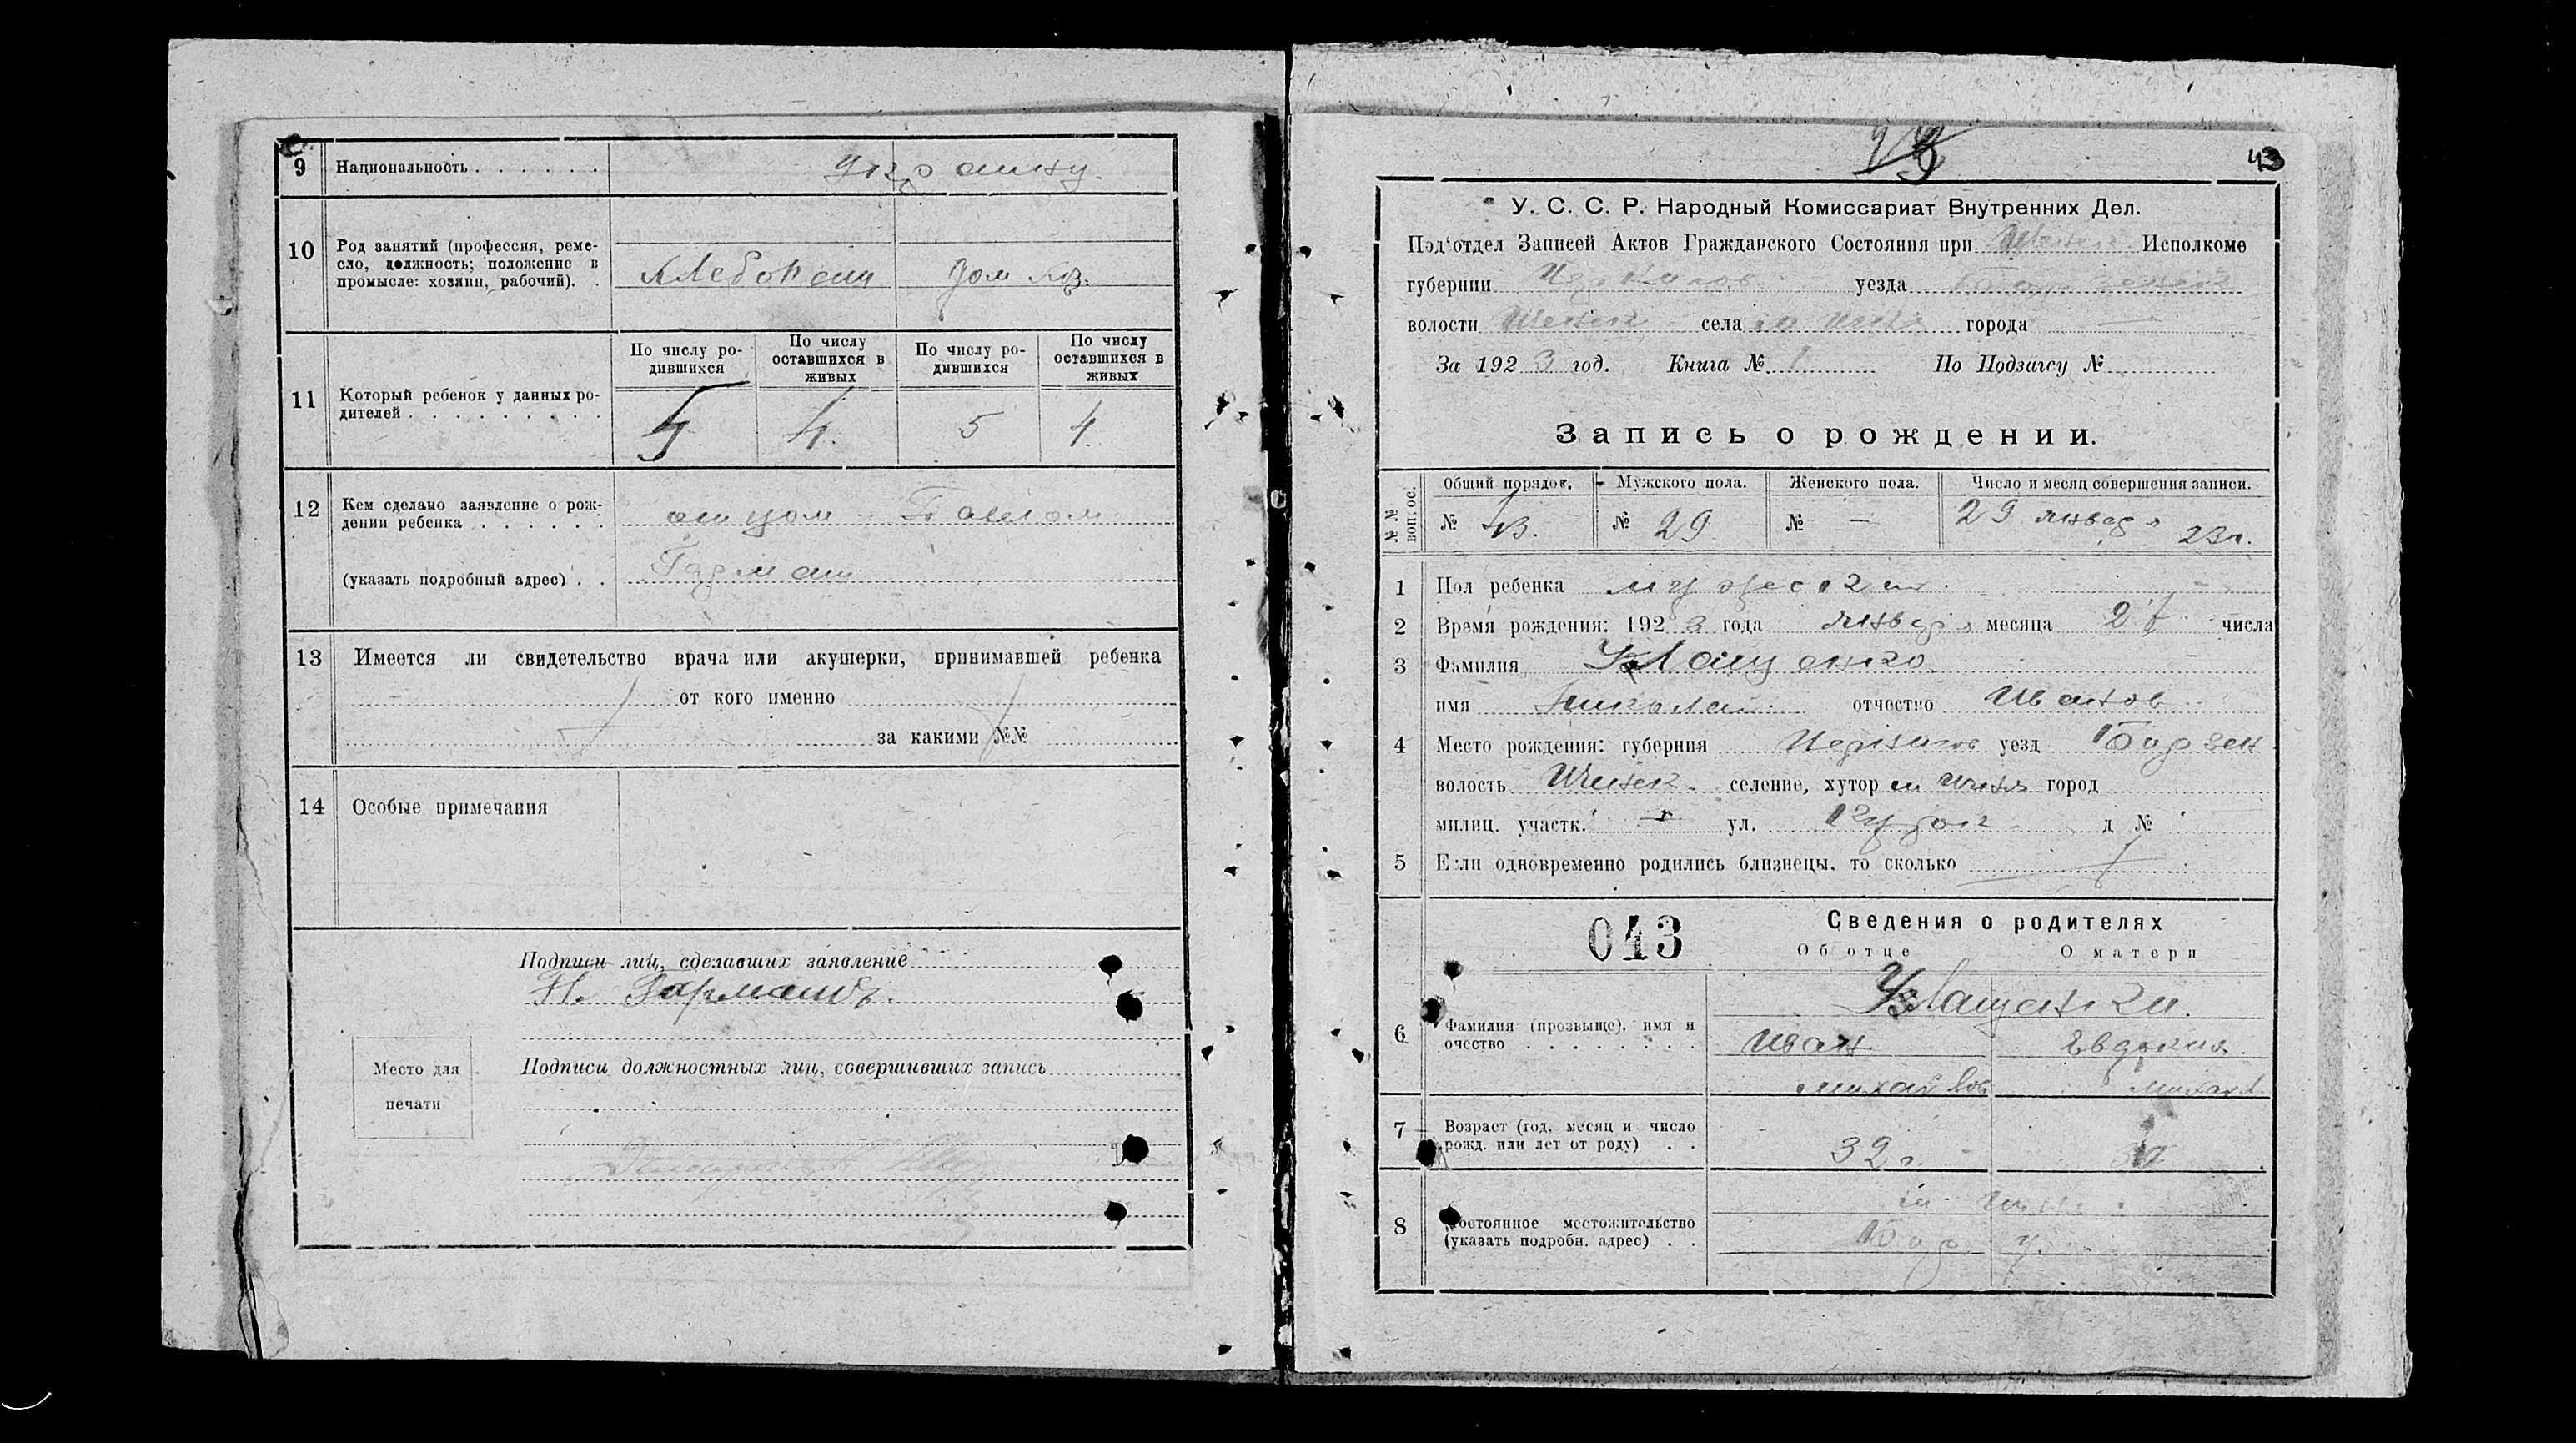 9 Национальность . . . . . . украинц.
10 Род занятий (профессия, реме-
сло, должность; положение в
промысле: хозяин, рабочий). .
Хлебопаш Дом хоз.
По числу ро-
дившихся
По числу
оставшихся в
живых
По числу ро-
дившихся
По числу
оставшихся в
живых
11 Который ребенок у данных ро-
дителей . . . . . . . . .
5 4. 5 4.
12 Кем сделано заявление о рож-
дении ребенка . . . . . .
отцом Павлом
(указать подробный адрес) . .
Гармаш
13 Имеется ли свидетельство врача или акушерки, принимавшей ребенка
от кого именно
за какими №№
14 Особые примечания
Подписи лиц, сделавших заявление
П. Гармашъ.
Место для
печати
Подписи должностных лиц, совершивших запись
43
У. С. С. Р. Народный Комиссариат Внутренних Дел.
Под'отдел Записей Актов Гражданского Состояния при Исполкоме
губернии Чернигов уезда
волости Ичнян села м Ичня города —
За 1923 год. Книга № 1 По Подзагсу №
Запись о рождении.
№№ вопрос.
Общий порядок. Мужского пола. Женского пола. Число и месяц совершения записи.
№ 43. № 29 № — 29 январ я 23 г.
1 Пол ребенка мужеск
2 Время рождения: 1923 года январ я месяца 27 числа
3 Фамилия
имя Николай отчество Иванов
4 Место рождения: губерния Чернигов уезд Борзен
волость Ичнян. селение, хутор м Ичня город
милиц. участк. ул. д №
5 Если одновременно родились близнецы, то сколько
043
Сведения о родителях
Об отце О матери
6 Фамилия (прозвыще), имя и
очество . . . . . . . .
Иван Евдокия
Михайлов Михайл
7 Возраст (год, месяц и число
рожд. или лет от роду) . .
32 г.
8 Постоянное местожительство
(указать подробн. адрес) . .
м. Ичня
Бор. у.